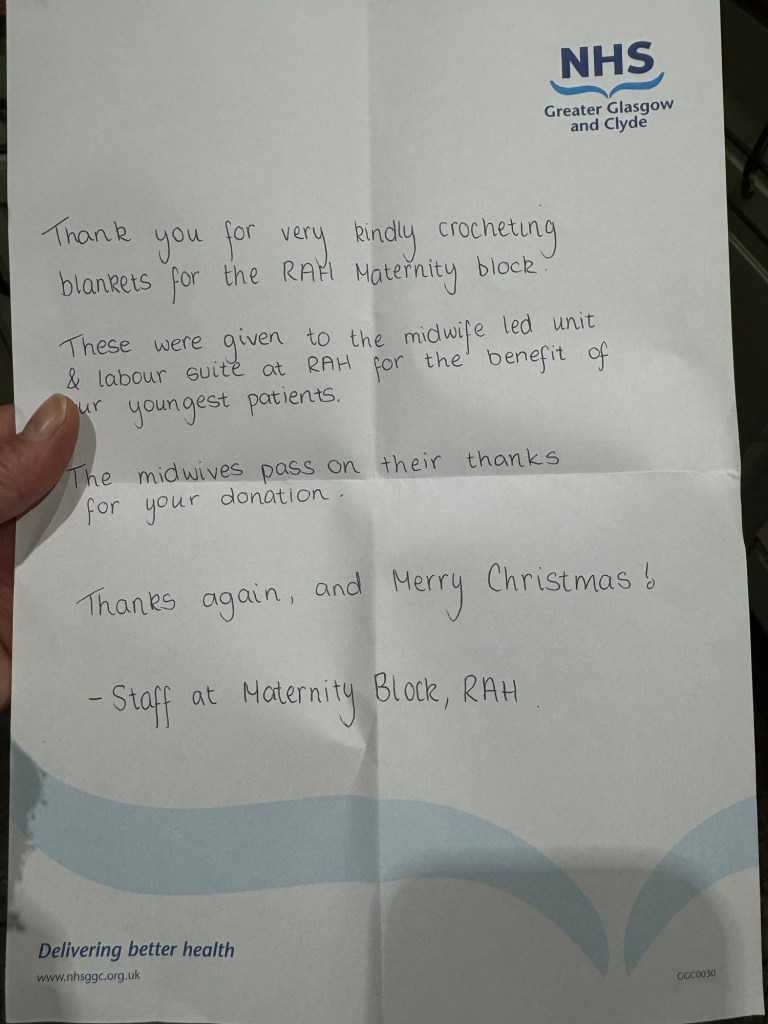 NHS
Greater Glasgow
and Clyde
Thank you for very kindly crocheting
blankets for the RAH Maternity block.
These were given to the midwife led unit
& labour suite at RAH for the benefit of
ur youngest patients.
The midwives pass on their thanks
for your donation.
Thanks again, and Merry Christmas!
- Staff at Maternity Block, RAH.
Delivering better health
www.nhsggc.org.uk
GGC0030